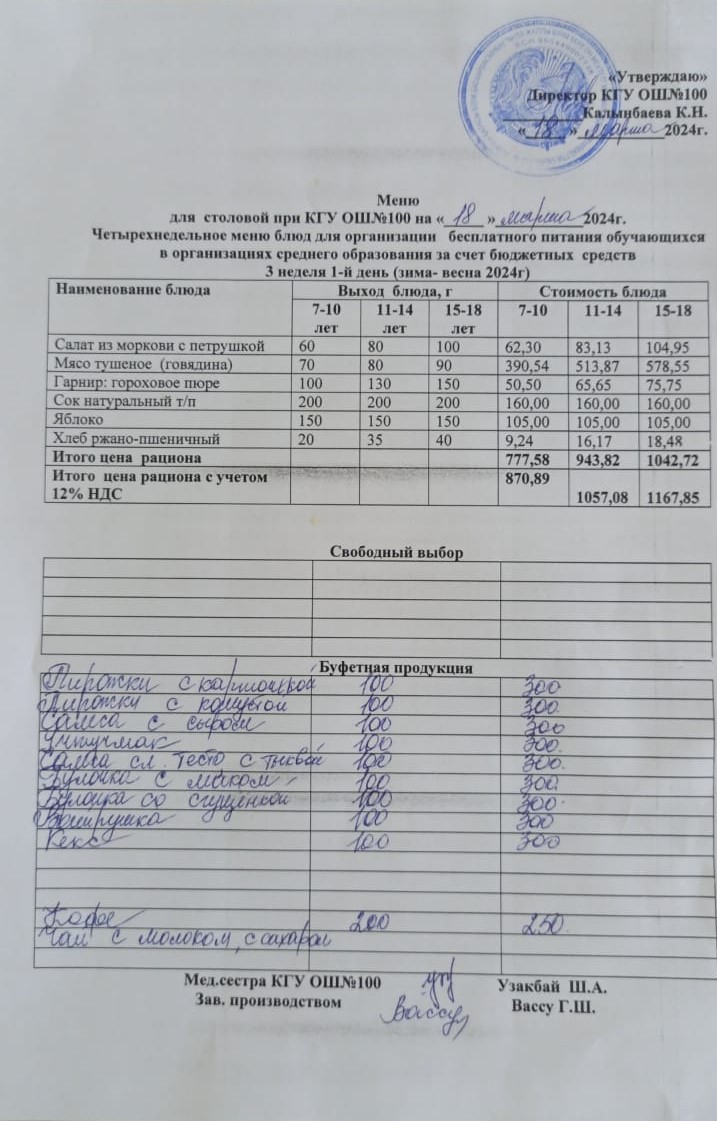 «Утверждаю»
Директор КГУ ОШ№100
__________Калынбаева К.Н.
«_18_»_марта_2024г.
Меню
для столовой при КГУ ОШ№100 на «_18_»_марта_2024г.
Четырехнедельное меню блюд для организации бесплатного питания обучающихся
в организациях среднего образования за счет бюджетных средств
3 неделя 1-й день (зима- весна 2024г)
Наименование блюда Выход блюда, г Стоимость блюда
7-10 лет 11-14 лет 15-18 лет 7-10 11-14 15-18
Салат из моркови с петрушкой 60 80 100 62,30 83,13 104,95
Мясо тушеное (говядина) 70 80 90 390,54 513,87 578,55
Гарнир: гороховое пюре 100 130 150 50,50 65,65 75,75
Сок натуральный т/п 200 200 200 160,00 160,00 160,00
Яблоко 150 150 150 105,00 105,00 105,00
Хлеб ржано-пшеничный 20 35 40 9,24 16,17 18,48
Итого цена рациона 777,58 943,82 1042,72
Итого цена рациона с учетом 870,89
12% НДС 1057,08 1167,85
Свободный выбор
Буфетная продукция
Пирожки с картошкой 100 300
Пирожки с капустой 100 300
Самса с сыром 100 300
Учпучмак 100 300.
Самса сл. тесто с тыквой 100 300.
Булочка с маком 100 300
Булочка со сгущенкой 100 300.
Ватрушка 100 300
Кекс 100 300
Кофе 200 250.
Чай с молоком, с сахаром
Мед.сестра КГУ ОШ№100 Узакбай Ш.А.
Зав. производством Вассу Вассу Г.Ш.